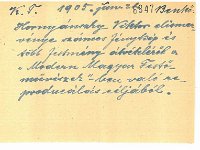 K. T. 1905. jan. 2 6947 Benkő
Hornyánszky Viktor elismer-
vénye számos fénykép és
több festmény átvételéről a
"Modern Magyar Festő-
művészek"-ben való re-
produkálás céljából.